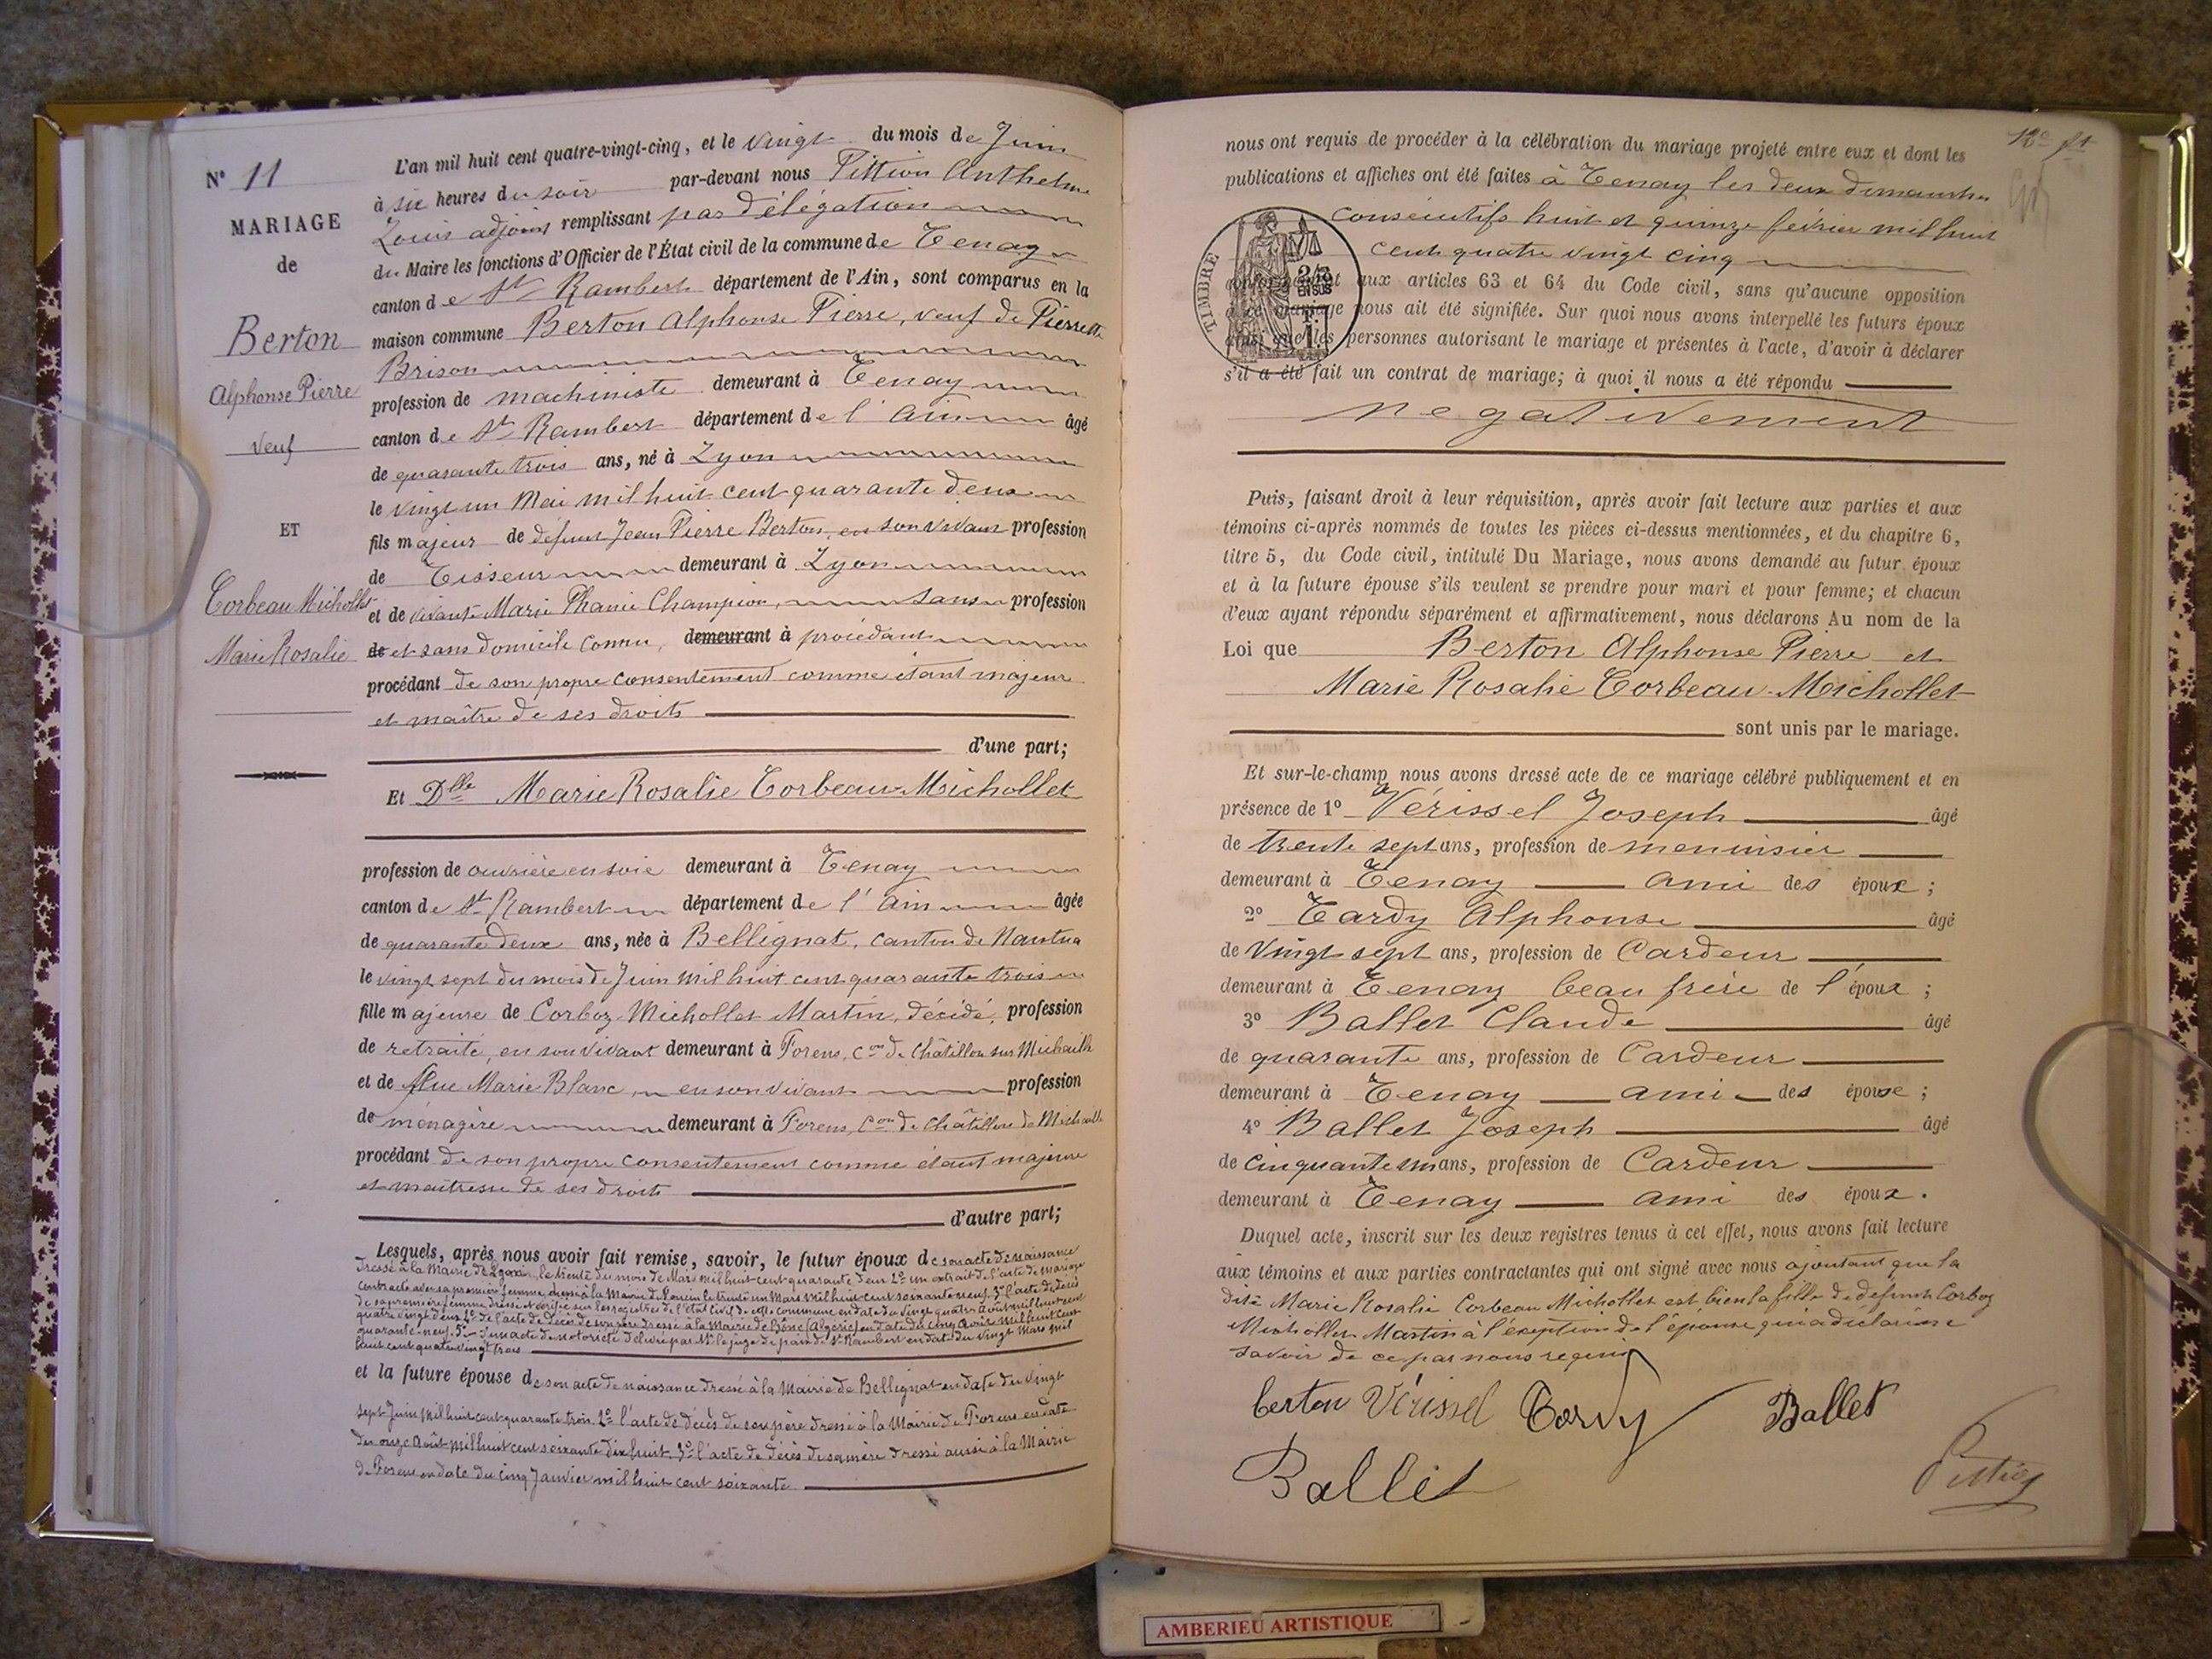 N° 11
MARIAGE
de
Berton
Alphonse Pierre
veuf
ET
Corbeau Michollet
Marie Rosalie
L'an mil huit cent quatre-vingt-cinq, et le vingt du mois de Juin
à six heures du soir par-devant nous Pittion Anthelme
Louis adjoint remplissant par délégation
du Maire les fonctions d'Officier de l'État civil de la commune de Tenay
canton de St Rambert département de l'Ain, sont comparus en la
maison commune Berton Alphonse Pierre, veuf de Pierrette
Brison
profession de machiniste demeurant à Tenay
canton de St Rambert département de l'Ain âgé
de quarante trois ans, né à Lyon
le vingt un Mai mil huit cent quarante deux
fils majeur de défunt Jean Pierre Berton, en son vivant profession
de Tisseur demeurant à Lyon
et de vivante Marie Phanie Champion, sans profession
de et sans domicile connu, demeurant à procédant
procédant de son propre consentement comme étant majeur
et maître de ses droits
d'une part;
Et Dlle Marie Rosalie Corbeau-Michollet
profession de ouvrière en soie demeurant à Tenay
canton de St Rambert département de l'Ain âgée
de quarante deux ans, née à Bellignat, canton de Nantua
le vingt sept du mois de Juin mil huit cent quarante trois
fille majeure de Corboz-Michollet Martin, décédé, profession
de retraité, en son vivant demeurant à Forens, con de Châtillon sur Michaille
et de Marie Blanc, en son vivant profession
de ménagère demeurant à Forens, con de Châtillon de Michaille
procédant de son propre consentement comme étant majeure
et maîtresse de ses droits
d'autre part;
Lesquels, après nous avoir fait remise, savoir, le futur époux de son acte de naissance
dressé à la Mairie de Lyon le trente du mois de Mars mil huit cent quarante deux 2° un extrait de l'acte de mariage
contracté avec sa première femme, dressé à la Mairie de le trente un Mars mil huit cent soixante neuf 3° l'acte de décès
de sa première femme dressé et vérifié sur les registres de l'état civil de cette commune en date du vingt quatre Août mil huit cent
quatre vingt deux 4° de l'acte de décès de son père dressé à la Mairie de Bône (Algérie) en date du cinq Août mil huit cent
quarante-neuf, 5° d'un acte de notoriété délivré par Mr le juge de paix de St Rambert en date du vingt Mars mil
huit cent quatre vingt trois
et la future épouse de son acte de naissance dressé à la Mairie de Bellignat en date du vingt
sept Juin mil huit cent quarante trois 2° l'acte de décès de son père dressé à la Mairie de Forens en date
du onze Août mil huit cent soixante dix huit. 3° l'acte de décès de sa mère dressé aussi à la Mairie
de Forens en date du cinq Janvier mil huit cent soixante
nous ont requis de procéder à la célébration du mariage projeté entre eux et dont les
publications et affiches ont été faites à Tenay les deux dimanches
consécutifs huit et quinze février mil huit
cent quatre vingt cinq
TIMBRE
2/10 EN SUS
conformément aux articles 63 et 64 du Code civil, sans qu'aucune opposition
à ce mariage nous ait été signifiée. Sur quoi nous avons interpellé les futurs époux
ainsi que les personnes autorisant le mariage et présentes à l'acte, d'avoir à déclarer
s'il a été fait un contrat de mariage; à quoi il nous a été répondu
negativement
Puis, faisant droit à leur réquisition, après avoir fait lecture aux parties et aux
témoins ci-après nommés de toutes les pièces ci-dessus mentionnées, et du chapitre 6,
titre 5, du Code civil, intitulé Du Mariage, nous avons demandé au futur époux
et à la future épouse s'ils veulent se prendre pour mari et pour femme; et chacun
d'eux ayant répondu séparément et affirmativement, nous déclarons Au nom de la
Loi que Berton Alphonse Pierre et
Marie Rosalie Corbeau-Michollet
sont unis par le mariage.
Et sur-le-champ nous avons dressé acte de ce mariage célébré publiquement et en
présence de 1° Vérissel Joseph âgé
de trente sept ans, profession de menuisier
demeurant à Tenay ami des époux;
2° Tardy Alphonse âgé
de vingt sept ans, profession de Cardeur
demeurant à Tenay beau frère de l'époux;
3° Ballet Claude âgé
de quarante ans, profession de Cardeur
demeurant à Tenay ami des époux;
4° Ballet Joseph âgé
de cinquante un ans, profession de Cardeur
demeurant à Tenay ami des époux.
Duquel acte, inscrit sur les deux registres tenus à cet effet, nous avons fait lecture
aux témoins et aux parties contractantes qui ont signé avec nous ajoutant que la
dite Marie Rosalie Corbeau Michollet est bien la fille de défunt Corboz
Michollet Martin à l'exeption de l'épouse qui a déclaré ne
savoir de ce par nous requis
berton Vérissel Tardy Ballet
Ballet
AMBERIEU ARTISTIQUE